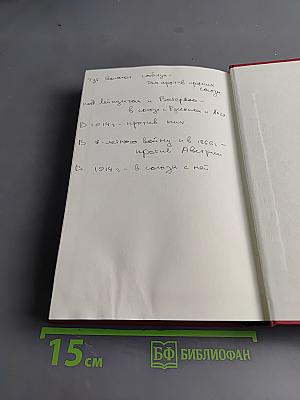 где воюют сейчас -
там против прежних
союзн.
под Лейпцигом и Ватерлоо -
в союзе с Россией и Англ.
В 1914 г - против них
В 7-летнюю войну и в 1866 г -
против Австрии
В 1914 г - в союзе с ней
15 см
БФ БИБЛИОФАН